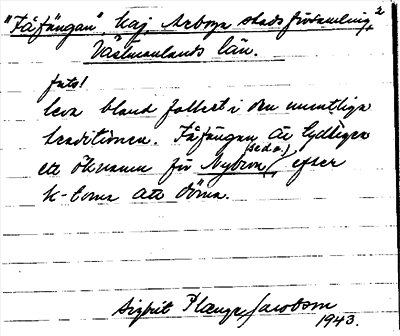 "Fåfängan", Haj, Arboga stads församling, 2
Västmanlands län.
forts!
leva bland folket i den muntliga
traditionen. Fåfängan är tydligen
ett öknamn för Nybron (se d.o.) efter
K-torna att döma.
Sigbrit Plænge Jacobson
1943.